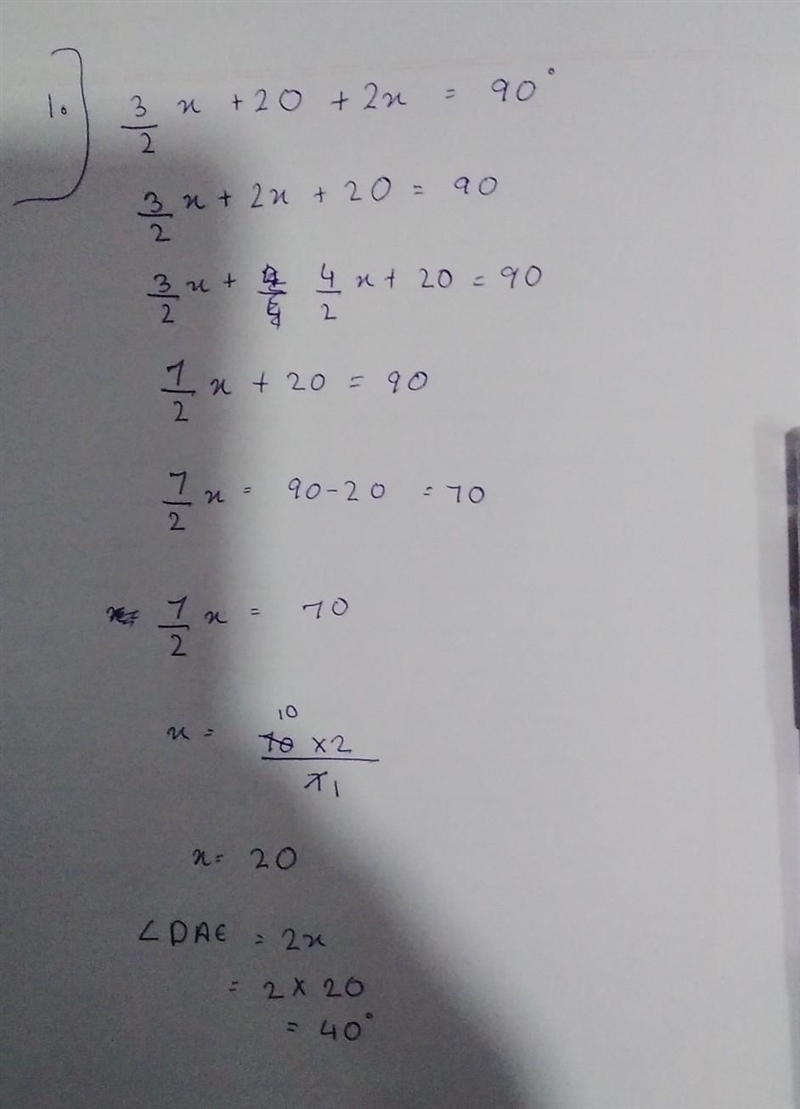 10] 3/2 x + 20 + 2x = 90°
3/2 x + 2x + 20 = 90
3/2 x + 4/2 x + 20 = 90
7/2 x + 20 = 90
7/2 x = 90 - 20 = 70
7/2 x = 70
x = 10 70 × 2 / 7 1
x = 20
∠DAE = 2x
= 2 × 20
= 40°